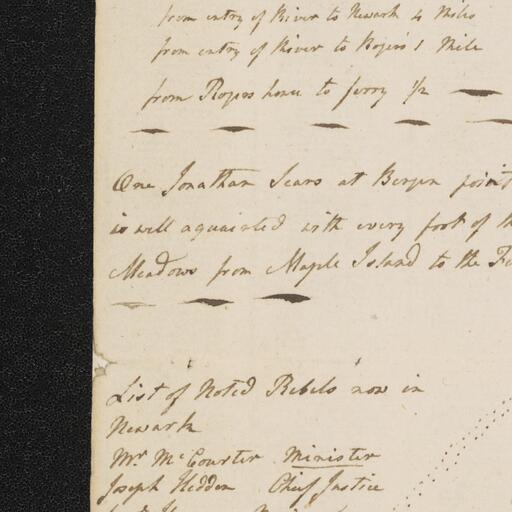 from entry of River to Newark 4 Miles
from entry of River to Rogers 1 Mile
from Rogers house to ferry 1/2
One Jonathan Sears at Bergen point
is well aquainted with every foot of th
Meadows from Maple Island to the Fe
List of Noted Rebels now in
Newark
Mr. McCourter Minister
Joseph Hedden Chief Justice